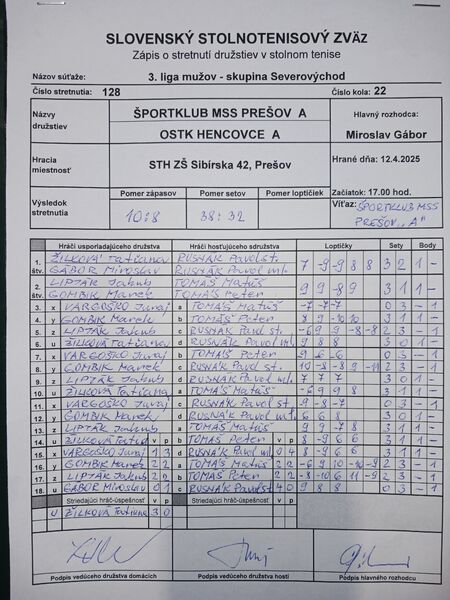 SLOVENSKÝ STOLNOTENISOVÝ ZVÄZ
Zápis o stretnutí družstiev v stolnom tenise
Názov súťaže: 3. liga mužov - skupina Severovýchod
Číslo stretnutia: 128 Číslo kola: 22
Názvy družstiev ŠPORTKLUB MSS PREŠOV A Hlavný rozhodca:
OSTK HENCOVCE A Miroslav Gábor
Hracia miestnosť STH ZŠ Sibírska 42, Prešov Hrané dňa: 12.4.2025
Výsledok stretnutia Pomer zápasov Pomer setov Pomer loptičiek Začiatok: 17.00 hod.
10:8 38:32 Víťaz: ŠPORTKLUB MSS PREŠOV „A"
Hráči usporiadajúceho družstva Hráči hosťujúceho družstva Loptičky Sety Body
1. štv. ŽILKOVÁ Tatiana RUSNÁK Pavol st. 7 -9 -9 8 8 3 2 1 -
GÁBOR Miroslav RUSNÁK Pavol ml.
2. štv. LIPTÁK Jakub TOMÁŠ Matúš 9 9 -8 9 3 1 1 -
GOMBIK Marek TOMÁŠ Peter
3. x VARGOŠKO Juraj a TOMÁŠ Matúš -7 -7 -7 0 3 - 1
4. y GOMBIK Marek b TOMÁŠ Peter 8 9 -10 10 3 1 1 -
5. z LIPTÁK Jakub c RUSNÁK Pavol st. -6 9 9 -8 -8 2 3 - 1
6. u ŽILKOVÁ Tatiana d RUSNÁK Pavol ml. 9 8 8 3 0 1 -
7. x VARGOŠKO Juraj b TOMÁŠ Peter -9 -6 -6 0 3 - 1
8. y GOMBIK Marek c RUSNÁK Pavol st. 10 -8 -8 9 -11 2 3 - 1
9. z LIPTÁK Jakub d RUSNÁK Pavol ml. 7 7 7 3 0 1 -
10. u ŽILKOVÁ Tatiana a TOMÁŠ Matúš -6 9 9 8 3 1 1 -
11. x VARGOŠKO Juraj c RUSNÁK Pavol st. -9 -8 -7 0 3 - 1
12. y GOMBIK Marek d RUSNÁK Pavol ml. 6 6 8 3 0 1 -
13. z LIPTÁK Jakub a TOMÁŠ Matúš 9 9 -7 8 3 1 1 -
14. u ŽILKOVÁ v p b TOMÁŠ Peter v p 8 -9 6 6 3 1 1 -
15. x VARGOŠKO Juraj 1 3 d RUSNÁK Pavol ml. 0 4 8 -9 6 6 3 1 1 -
16. y GOMBIK Marek 2 2 a TOMÁŠ Matúš 2 2 -6 9 10 -10 -9 2 3 - 1
17. z LIPTÁK Jakub 2 2 b TOMÁŠ Peter 2 2 -8 -10 6 11 -9 2 3 - 1
18. u GÁBOR Miroslav 0 1 c RUSNÁK Pavol st. 4 0 9 8 8 3 0 - 1
Striedajúci hráč-úspešnosť v p Striedajúci hráč-úspešnosť v p
u ŽILKOVÁ Tatiana 3 0
Podpis vedúceho družstva domácich Podpis vedúceho družstva hostí Podpis hlavného rozhodcu